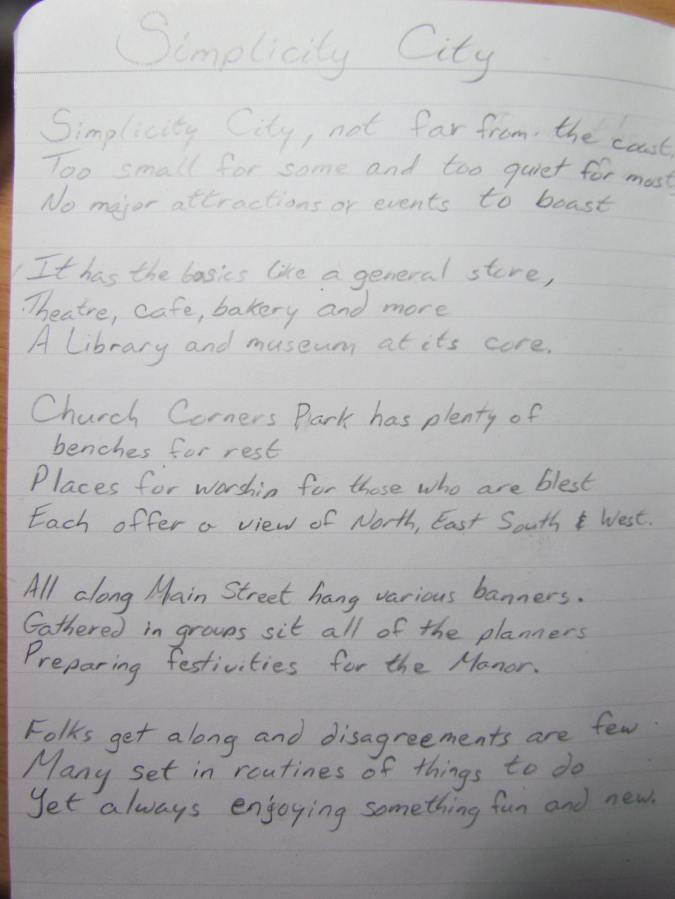 Simplicity City
Simplicity City, not far from the coast,
Too small for some and too quiet for most,
No major attractions or events to boast
It has the basics like a general store,
Theatre, cafe, bakery and more
A Library and museum at its core.
Church Corners Park has plenty of
benches for rest
Places for worship for those who are blest
Each offer a view of North, East South & West.
All along Main Street hang various banners.
Gathered in groups sit all of the planners
Preparing festivities for the Manor.
Folks get along and disagreements are few
Many set in routines of things to do
Yet always enjoying something fun and new.